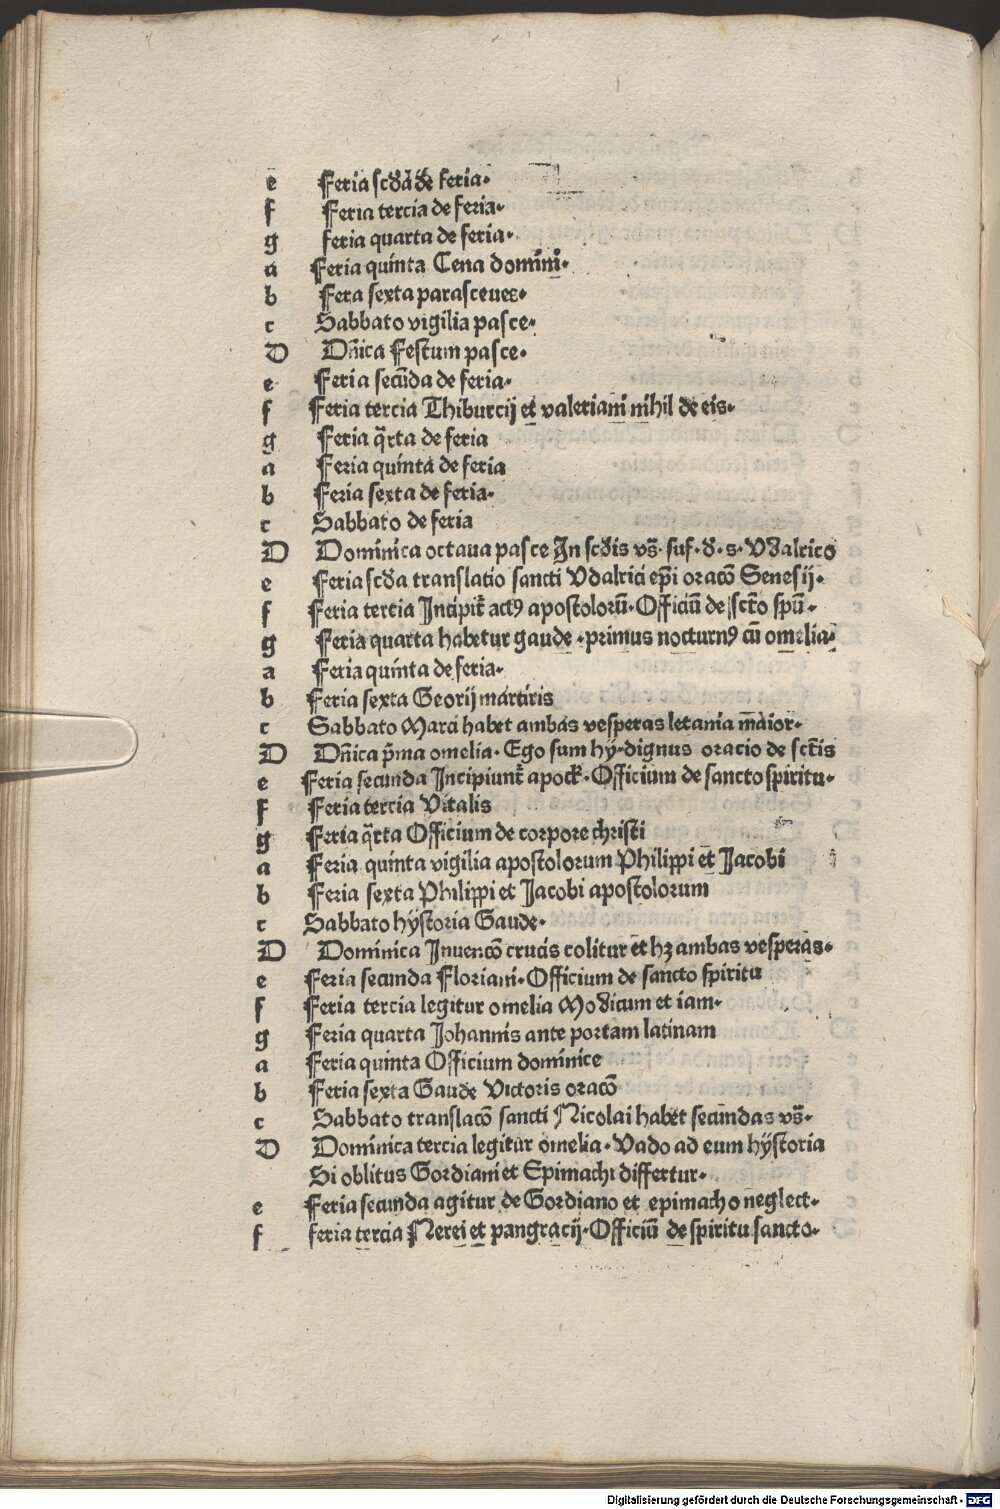 e Feria scd̄a de feria.
f Feria tercia de feria.
g feria quarta de feria.
a Feria quinta Cena domini.
b Fera sexta parasceues.
c Sabbato vigilia pasce.
D Dn̄ica Festum pasce.
e Feria secūda de feria.
f Feria tercia Thiburcij et valeriani nihil de eis.
g Feria q̄rta de feria
a Feria quinta de feria
b Feria sexta de feria.
c Sabbato de feria
D Dominica octaua pasce In scd̄is vs̄. suf. d. s. Vdalrico
e Feria scd̄a translatio sancti Vdalrici ep̄i oracō Senesij.
f Feria tercia Incipit̄ actꝰ apostolorū. Officiū de sct̄o spū.
g Feria quarta habetur gaude. primus nocturnꝰ cū omelia.
a Feria quinta de feria.
b Feria sexta Georij martiris
c Sabbato Marci habet ambas vesperas letania maior.
D Dn̄ica p̄ma omelia. Ego sum hy. dignus oracio de sct̄is
e Feria secunda Incipiunt̄ apock. Officium de sancto spiritu.
f Feria tercia Vitalis
g Feria q̄rta Officium de corpore christi
a Feria quinta vigilia apostolorum Philippi et Jacobi
b Feria sexta Philippi et Jacobi apostolorum
c Sabbato hystoria Gaude.
D Dominica Inuencō crucis colitur et hꝫ ambas vesperas.
e Feria secunda Floriani. Officium de sancto spiritu
f Feria tercia legitur omelia Modicum et iam.
g Feria quarta Johannis ante portam latinam
a Feria quinta Officium dominice
b Feria sexta Gaude Victoris oracō
c Sabbato translacō sancti Nicolai habet secundas vs̄.
D Dominica tercia legitur omelia. Vado ad eum hystoria
Si oblitus Gordiani et Epimachi differtur.
e Feria secunda agitur de Gordiano et epimacho neglect.
f feria tercia Nerei et pangracij. Officiū de spiritu sancto.
Digitalisierung gefördert durch die Deutsche Forschungsgemeinschaft - DFG